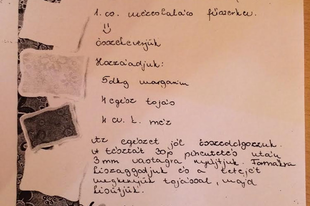 1. cs. mézeskalács fűszerkev.
összekeverjük
Hozzáadjuk:
5dkg margarin
4 egész tojás
4 ev. k. méz
Az egészet jól összedolgozzuk.
A tésztát 30p pihentetés után
3mm vastagra nyújtjuk. Formákra
kiszaggatjuk és a tetejét
megkenjük tojással, majd
kisütjük.